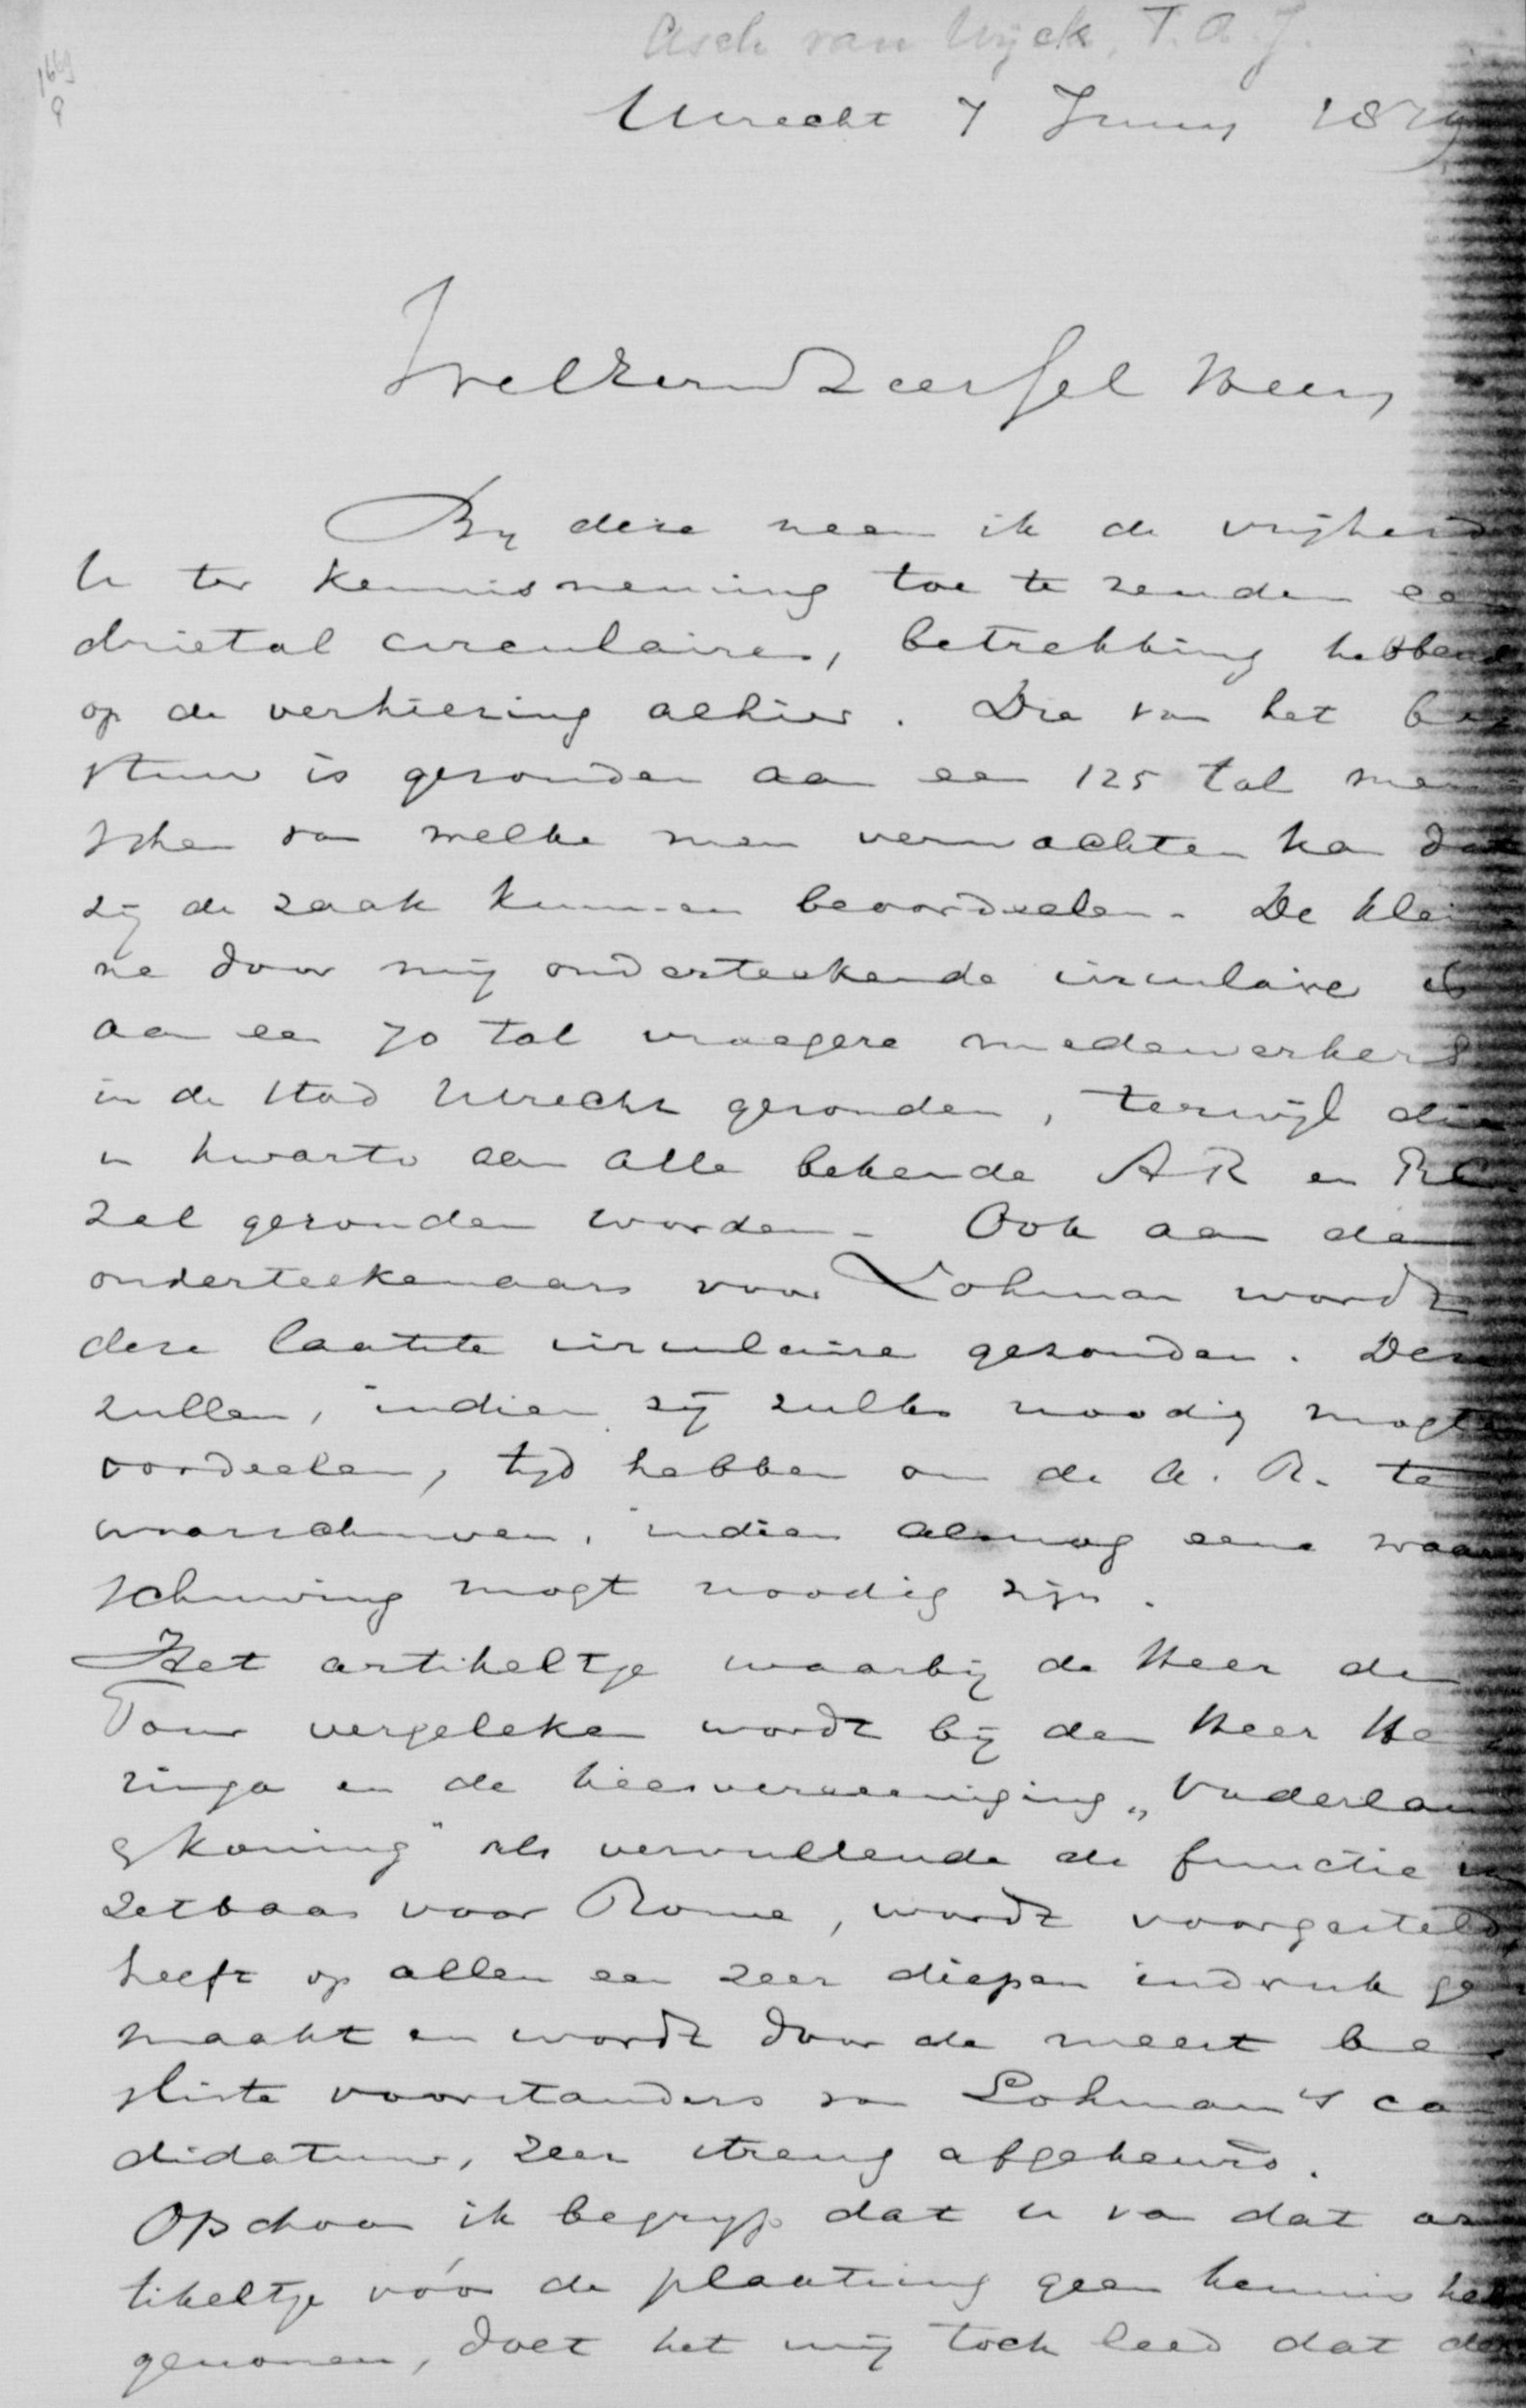 Asch van Wijck, T. A. J.
1669
Utrecht 7 Juny 1879
Weleerwaarde Heer,
By deze neem ik de vrijheid
U ter kennisneming toe te zenden een
drietal circulaires, betrekking hebbend
op de verkiezing alhier. Die van het be
stuur is gezonden aan een 125 tal men
schen van welke men verwachten kan dat
zij de zaak kunnen beoordeelen. De klei
ne door mij onderteekende circulaire is
aan een 70 tal vroegere medewerkers
in de stad Utrecht gezonden, terwijl die
in kwarto aan alle bekende AR en RC
zal gezonden worden. Ook aan den
onderteekenaars voor Lohman wordt
deze laatste circulaire gezonden. Deze
zullen, indien zij zulks noodig mogte
oordeelen, tyd hebben om de A. R. te
waarschuwen, indien alsnog eene waar
schuwing mogt noodig zijn.
Het artikeltje waarbij de Heer du
Tour vergeleken wordt bij den Heer He
ringa en de kiesvereeniging „Vaderland
& Koning" als vervullende de functie van
zetbaas voor Rome, wordt voorgesteld,
heeft op allen een zeer diepen indruk ge
maakt en wordt door de meest be
sliste voorstanders van Lohman's can
didatuur, zeer streng afgekeurd.
Opschoon ik begryp dat u van dat ar
tikeltje vóór de plaatsing geen kennis hebt
genomen, doet het mij toch leed dat